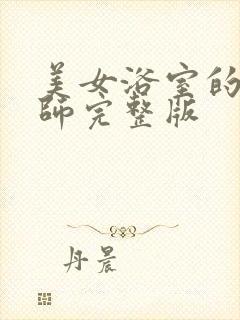 美女浴室的
師完整版
丹晨